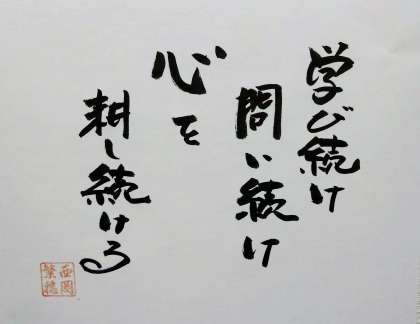 学び続け
問い続け
心を
耕し続ける